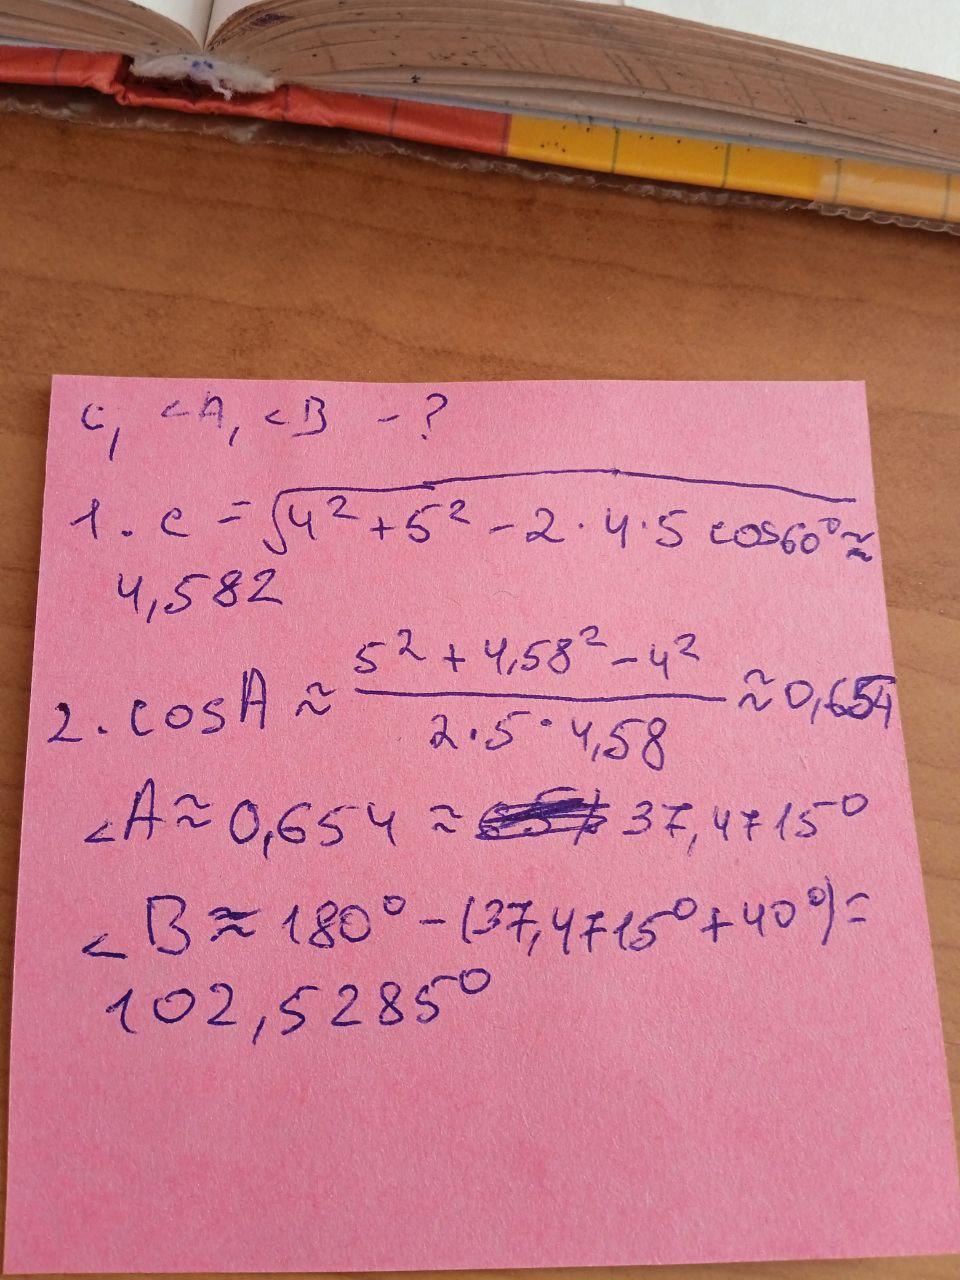 c, <A, <B - ?
1. c = √4² + 5² - 2 · 4 · 5 cos60° ≈
4,582
2. cosA ≈ (5² + 4,58² - 4²) / (2 · 5 · 4,58) ≈ 0,654
<A ≈ 0,654 ≈ 37,4715°
<B ≈ 180° - (37,4715° + 40°) =
102,5285°